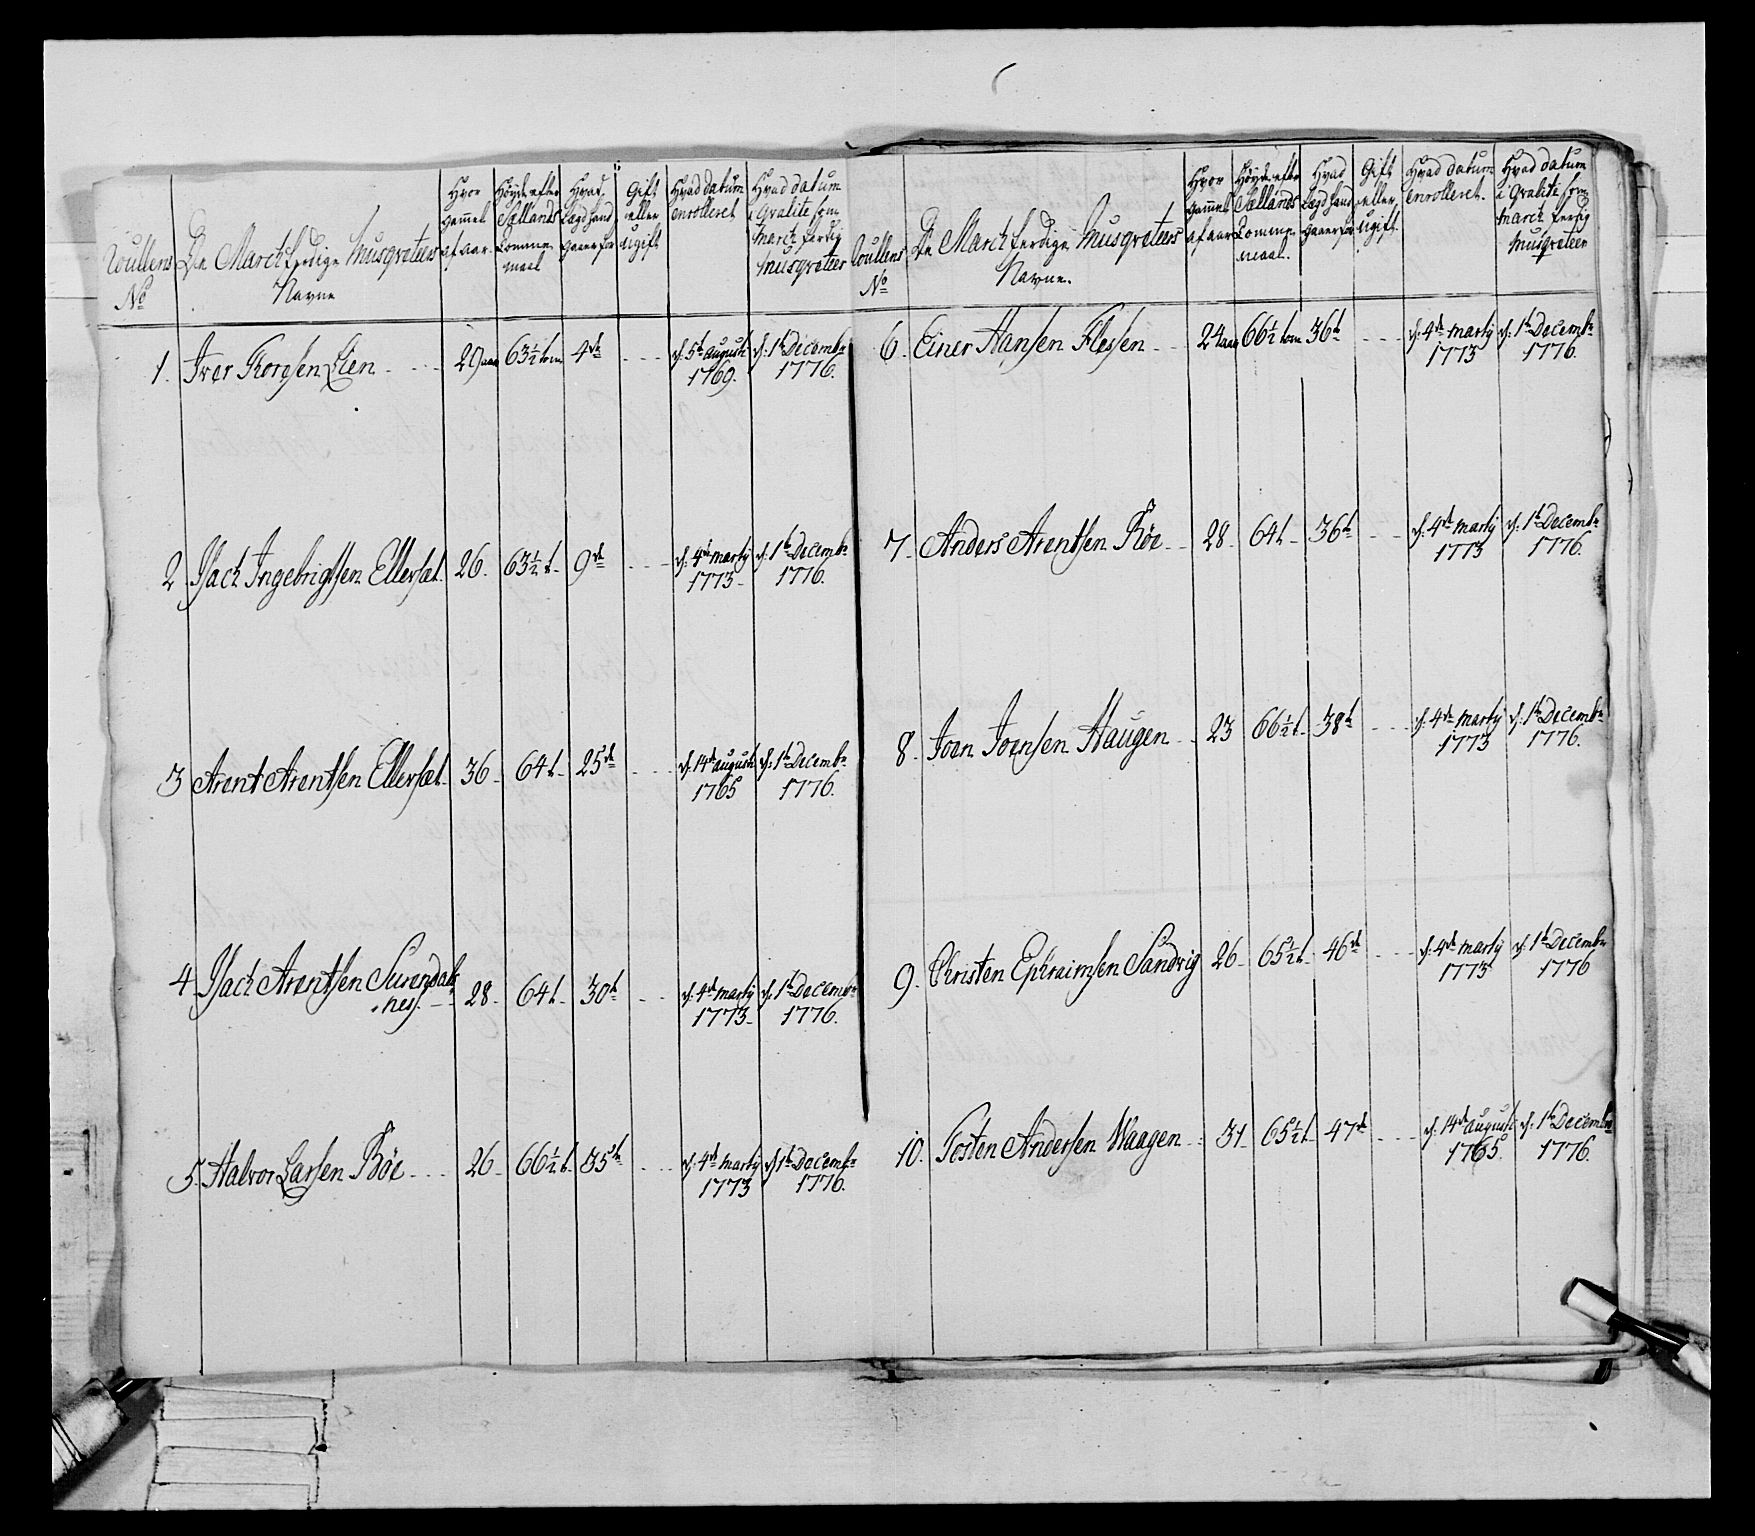 Roullens No
De March ferdige Musqveteers Navne
Hvor gammel af aar.
Höyde efter Sællands Tomme maal
Hvad Lægd hand gaaer for
Gift eller ugift
Hvad datum enrolleret
Hvad datum i Qvalite som march ferdig Musqveteer
1. Iver Toresen Lien 29 aar 63½ tom 4de d: 5te august 1769. d: 1te Decembr 1776.
2 Isach Ingebrigtsen Ellersæt 26. 63½ t. 9de d: 4de marty 1773. d: 1te Decembr 1776.
3 Arent Arentsen Ellersæt 36 64 t. 25de d: 14de august 1765 d: 1te Decembr 1776.
4 Isach Arentsen Surendals
nes. 28. 64 t. 30te d: 4de marty 1773. d: 1te Decembr 1776.
5. Halvor Larsen Böe 26. 66½ t. 35te d: 4de marty 1773 d: 1te Decembr 1776.
Roullens No
De March ferdige Musqveteers Navne.
Hvor gammel af aar
Höyde efter Sællands Tomme maal.
Hvad Lægd hand gaaer for
Gift eller ugift.
Hvad datum enrolleret.
Hvad datum i Qvalite som march ferdig Musqveteer
6. Einer Hansen Flessen 24 aar 66½ tom 36te d: 4de marty 1773 d: 1te Decembr 1776.
7. Anders Arentsen Röe 28. 64 t. 36te d: 4de marty 1773 d: 1te Decembr 1776.
8. Joen Joensen Haugen 23 66½ t. 38te d: 4de marty 1773 d: 1te Decembr 1776.
9. Christen Ephraimsen Sandvig 26. 65½ t. 46de d: 4de marty 1773 d: 1te Decembr 1776
10. Tosten Andersen Waagen 31. 65½ t. 47de d: 14de august 1765. d: 1te Decembr 1776.